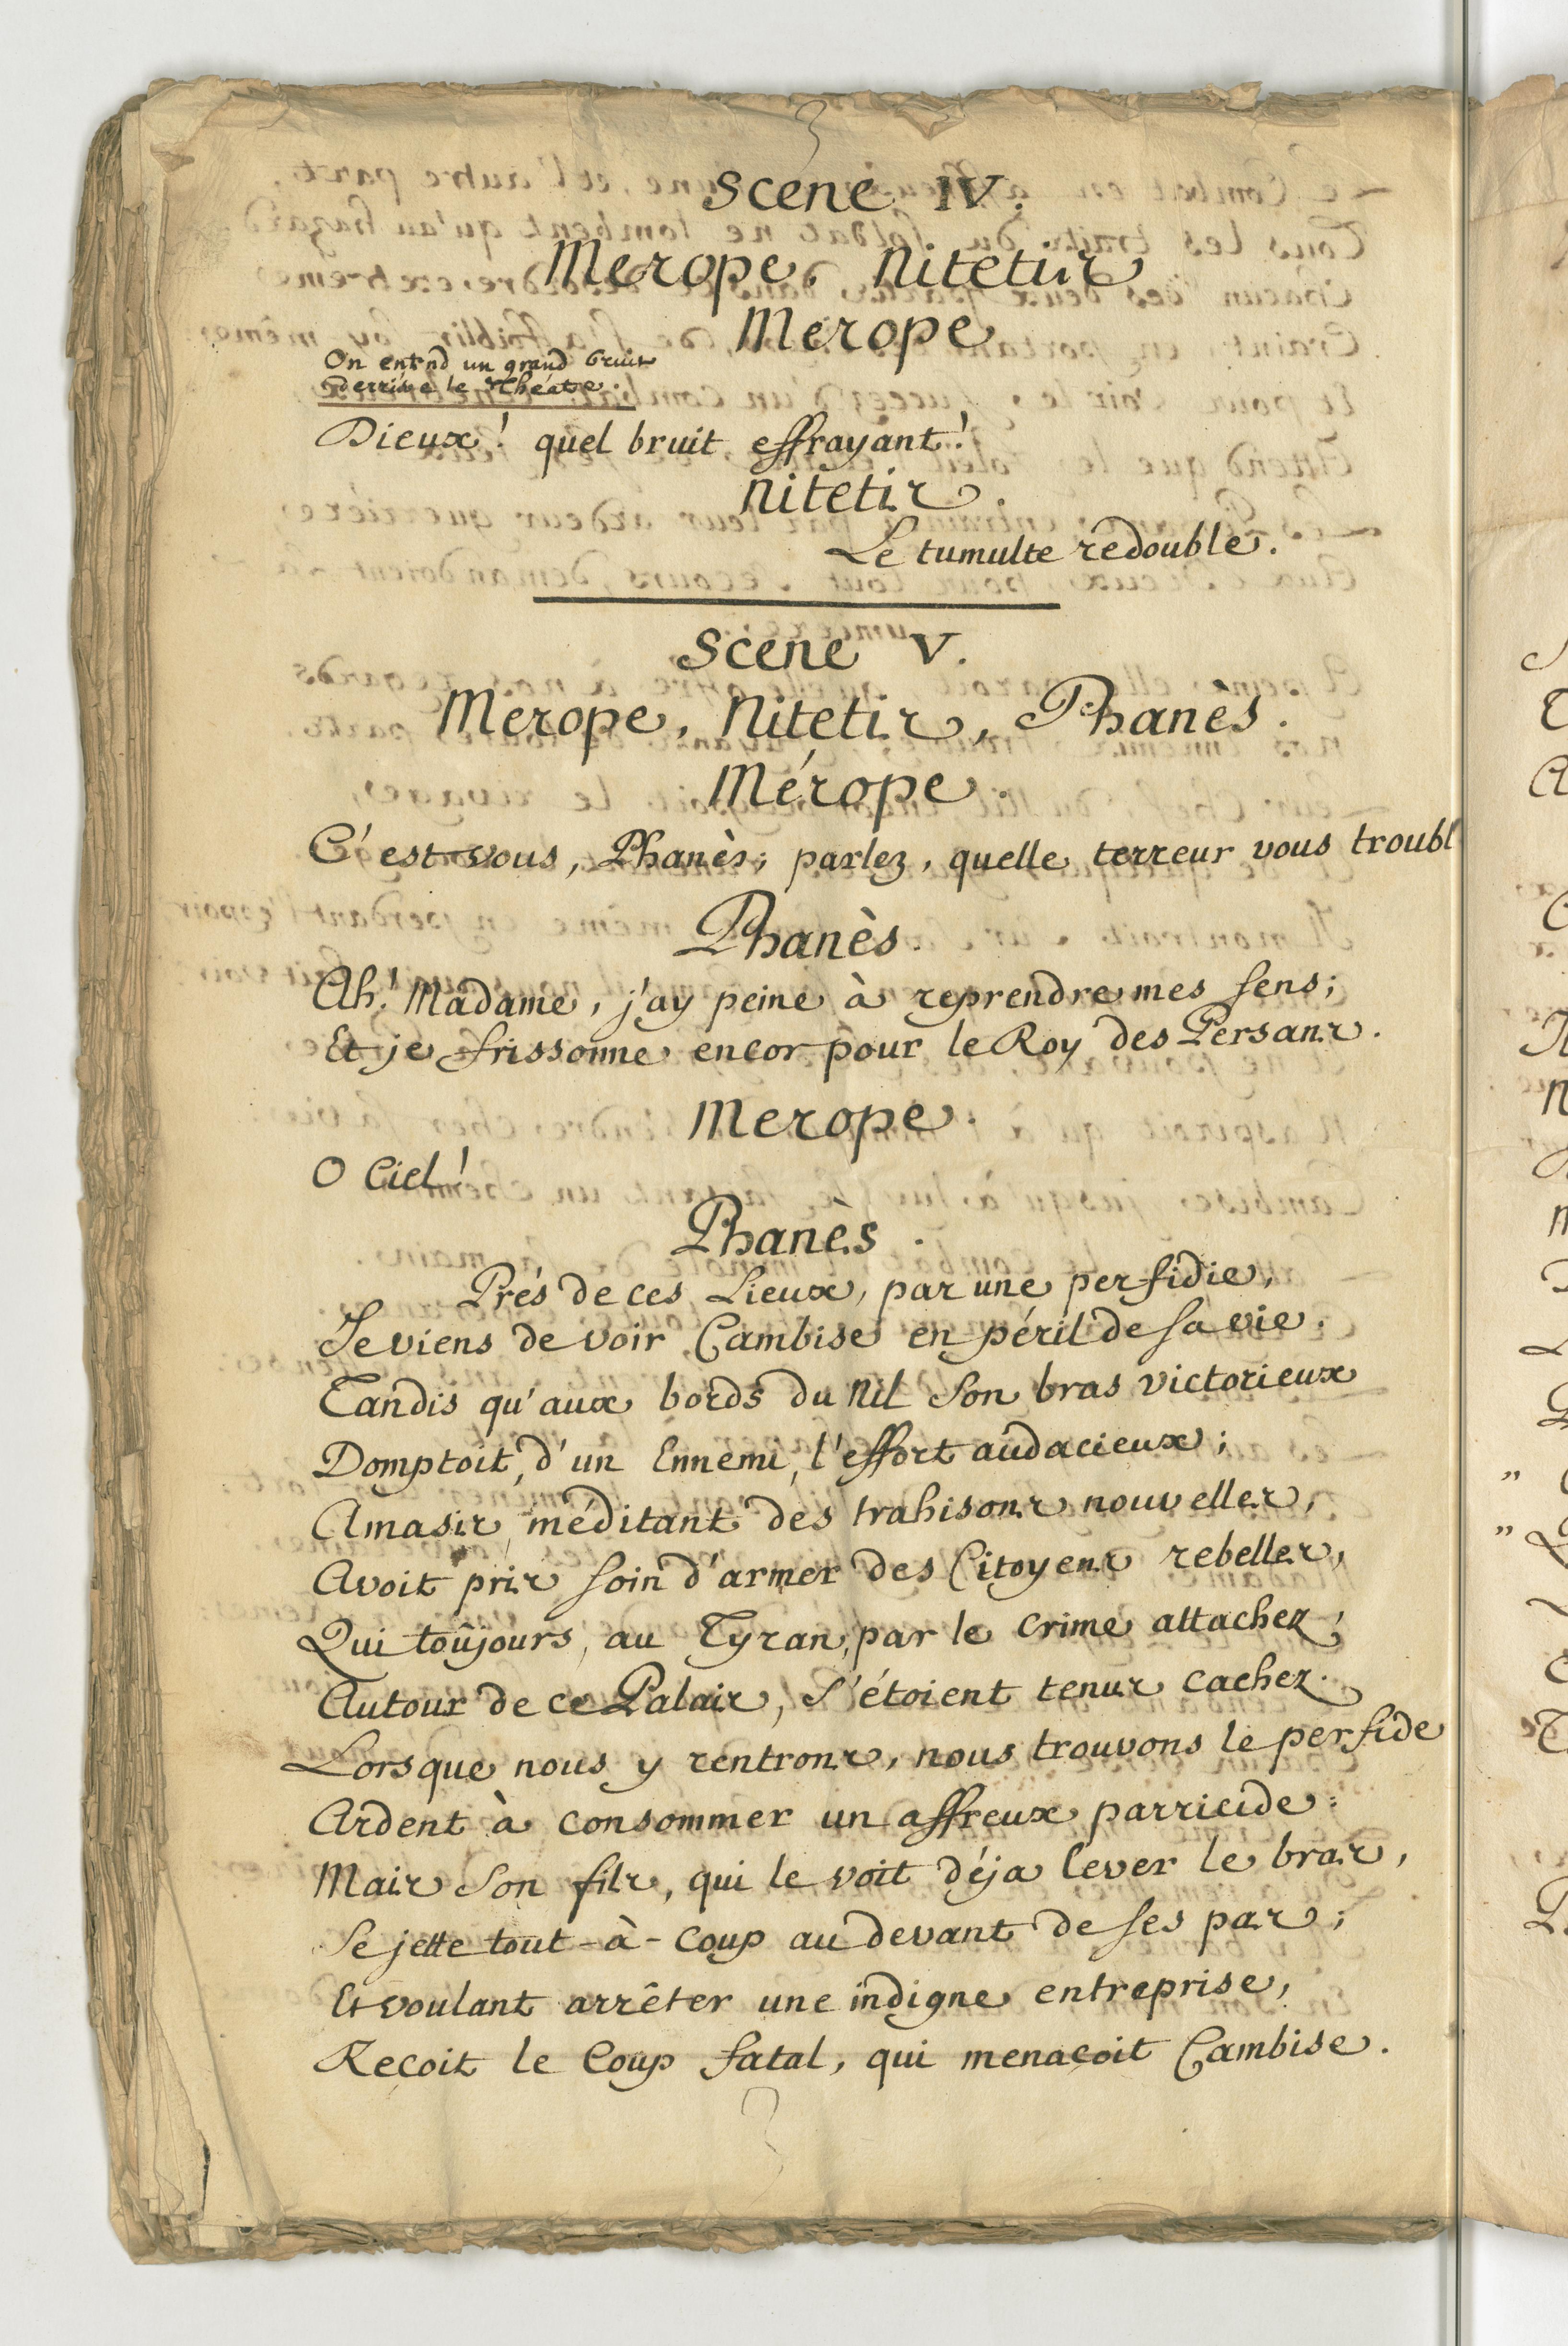 Scene IV.
Merope, Nitetis
Merope
On entend un grand bruit
derriere le Théatre.
Dieux! quel bruit effrayant!
Nitetis.
Le tumulte redouble.
Scene V.
Merope, Nitetis, Phanès.
Mérope.
C'est vous, Phanès; parlez, quelle terreur vous troubl
Phanès.
Ah! Madame, j'ay peine à reprendre mes sens;
Et je frissonne encor pour le Roy des Persans.
Merope.
O Ciel!
Phanès.
Prés de ces Lieux, par une perfidie,
Je viens de voir Cambise en péril de sa vie.
Tandis qu'aux bords du Nil son bras victorieux
Domptoit, d'un Ennemi, l'effort audacieux;
Amasis, méditant des trahisons nouvelles,
Avoit pris soin d'armer des Citoyens rebelles,
Qui toûjours, au Tyran, par le crime attachez,
Autour de ce Palais, s'étoient tenus cachez.
Lorsque nous y rentrons, nous trouvons le perfide
Ardent à consommer un affreux parricide:
Mais son fils, qui le voit déja lever le bras,
Se jette tout-à-coup au devant de ses pas;
Et voulant arrêter une indigne entreprise,
Reçoit le Coup fatal, qui menaçoit Cambise.